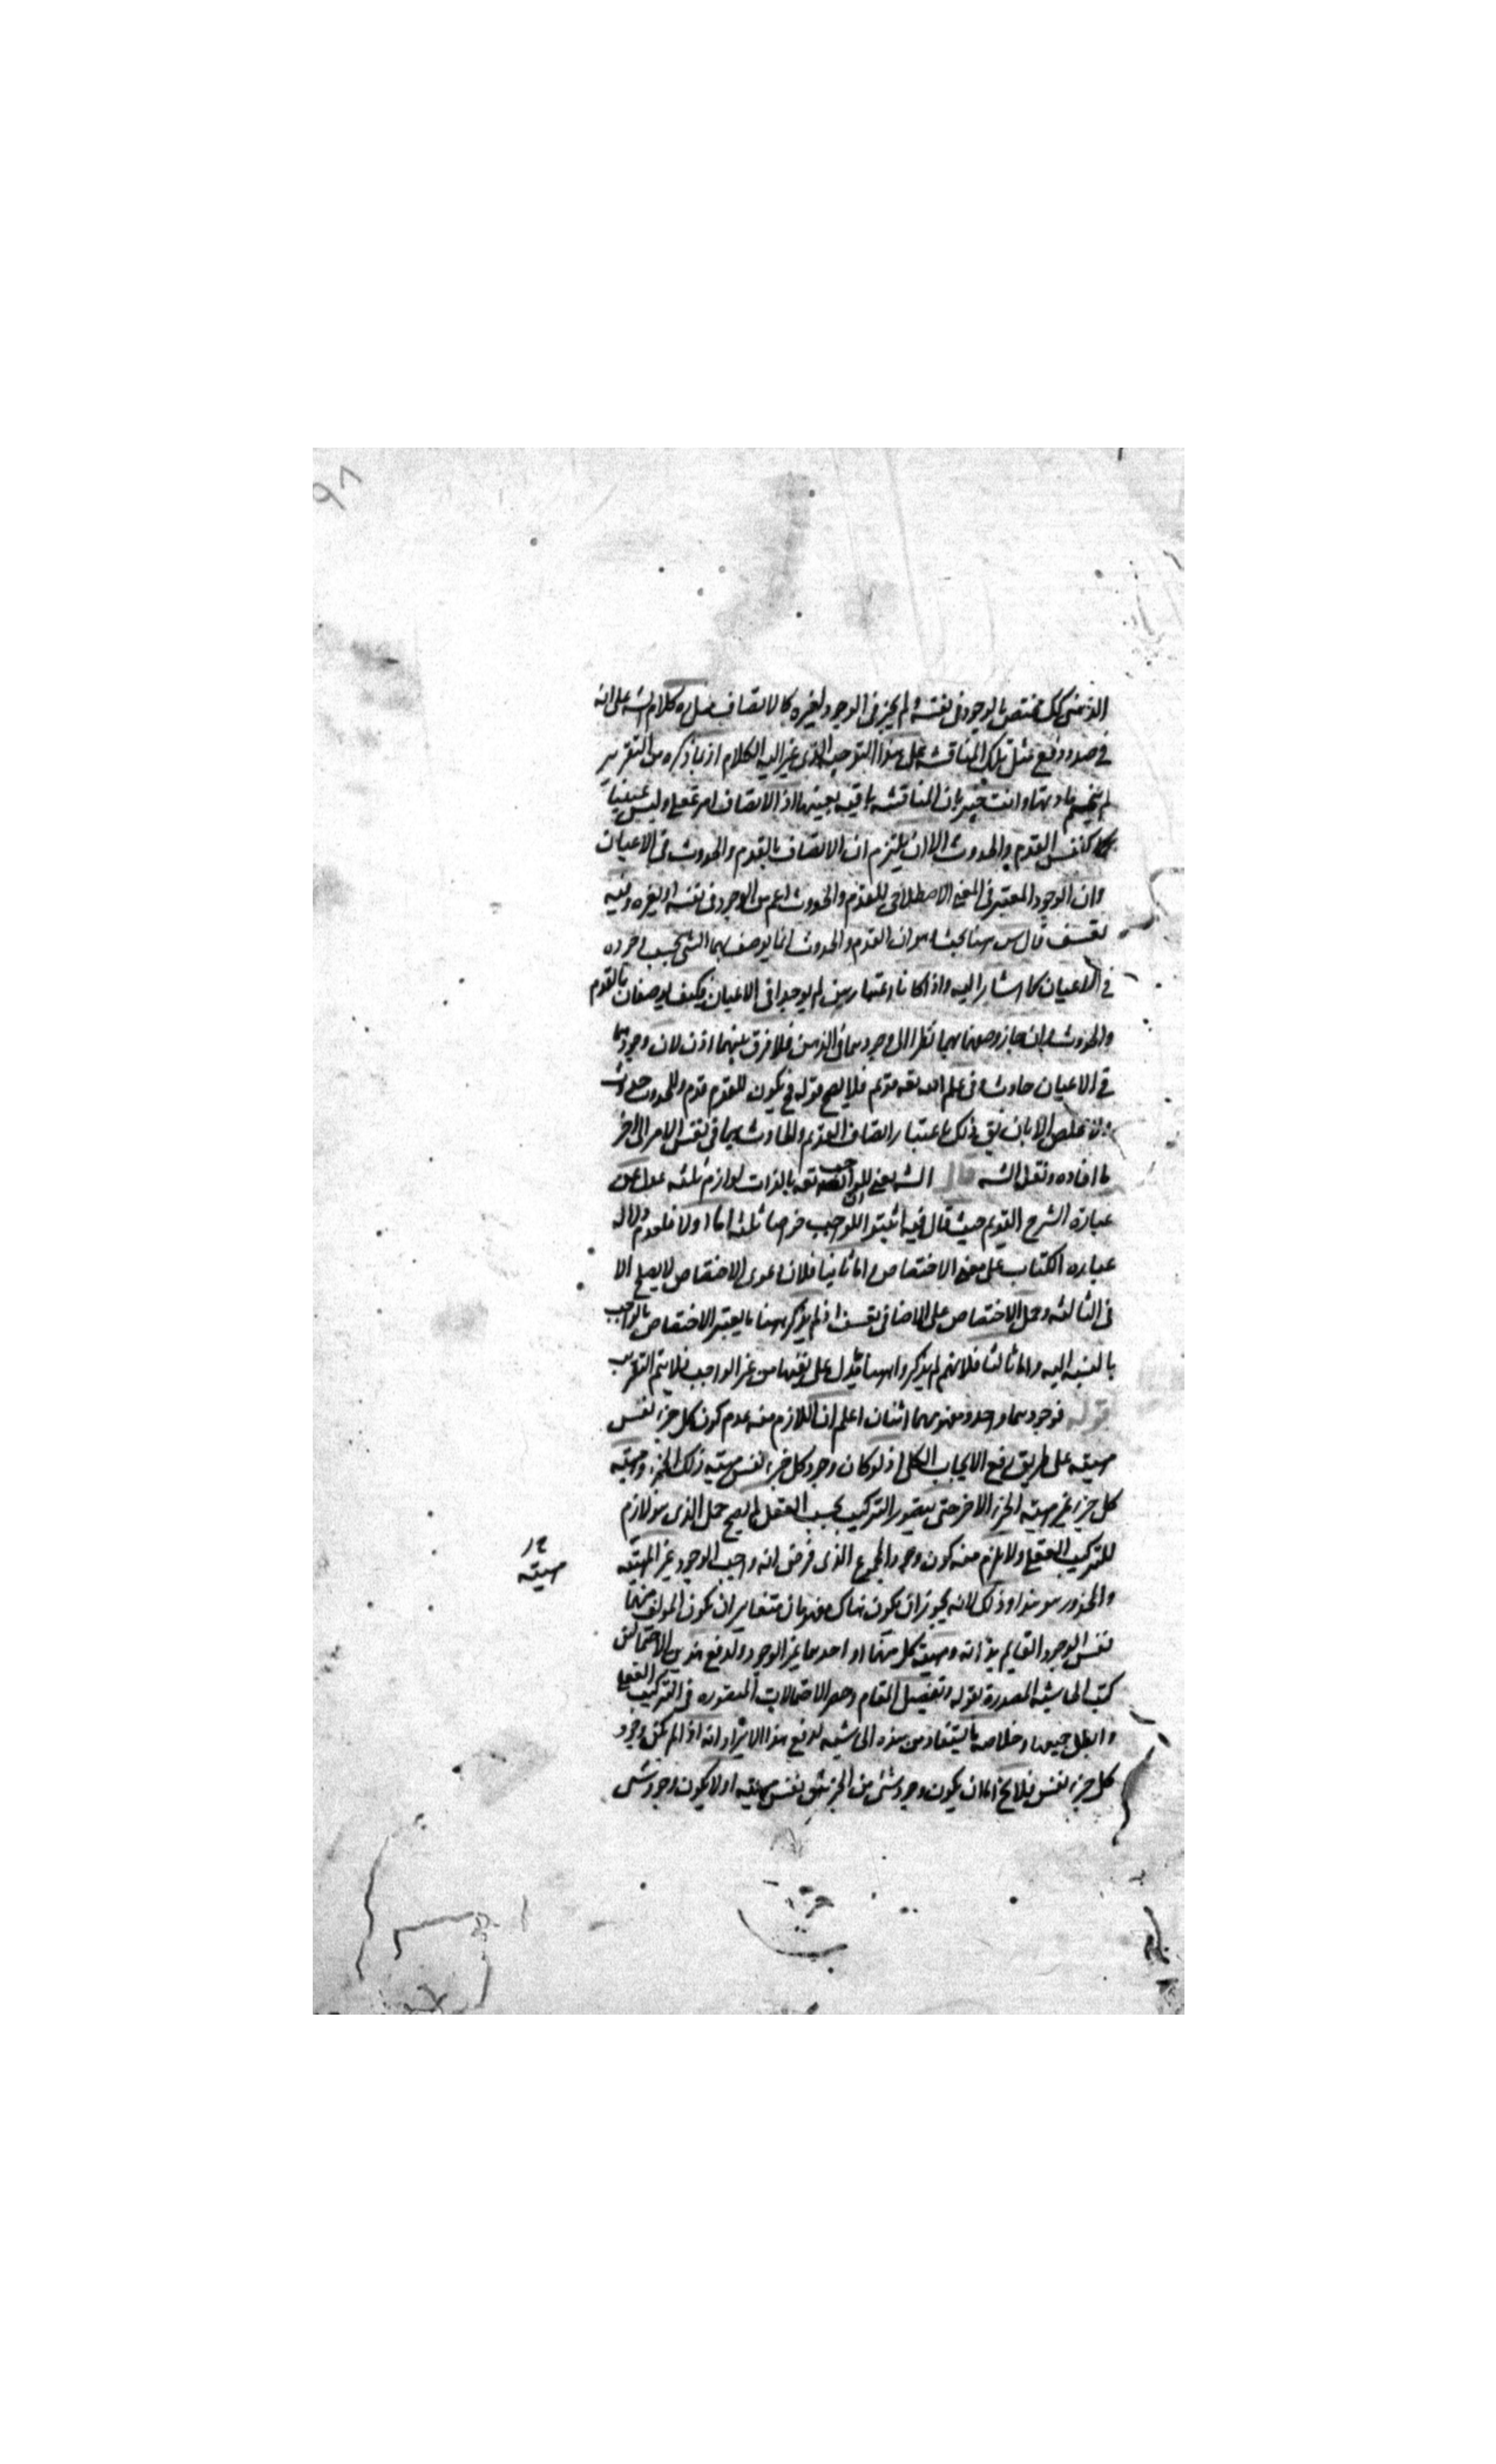 الذهنى كك مختص بالوجود فى نفسه ولم يجز فى الوجود لغيره كالاتصاف كلام الشه على انه
فى صدد دفع مثل تلك المناقشه على هذا التوجيه الذى الكلام اذ بما ذكره من التقرير
لم ينحسم مادتها وانت خبير بان المناقشه باقيه بعينها اذ الاتصاف امر عقلى وليس عينيا
كنفس القدم والحدوث الا ان يلتزم ان الاتصاف بالقدم والحدوث فى الاعيان
وان الوجود المعتبر فى المعنى الاصطلاحى للقدم والحدوث اعم من الوجود فى نفسه او لغيره وفيه
تعسف قال س ههنا بحث وهو ان القدم والحدوث انما يوصف بهما الشى بحسب وجوده
فى الاعيان كما اشار اليه واذا كانا اعتباريين لم يوجدا فى الاعيان فكيف يوصفان بالقدم
والحدوث وان جاز وصفهما بهما نظرا الى وجودهما فى الذهن فلا فرق بينهما اذن لان وجودهما
فى الاعيان حادث وفى علم الله تعه قديم فلا يصح قوله فح يكون للقدم قدم وللحدوث حدوث
ولا مخلص الا بان يق ذلك باعتبار اتصاف القديم والحادث بهما فى نفس الامر الى اخر
ما افاده ونقل الشه قال الشه يعنى للواجب تعه بالذات لوازم ثلثه عدل عن
عبارة الشرح القديم حيث قال فيه اثبتوا للواجب خواصا ثلثه اما اولا فلعدم دلاله
عباره الكتاب على معنى الاختصاص واما ثانيا فلان دعوى الاختصاص لا يصح الا
فى الثالثه وحمل الاختصاص على الاضافى تعسف اذ لم يذكر ههنا ما يعتبر الاختصاص بالواجب
بالنسبه اليه واما ثالثا فلانهم لم يذكروا ههنا ما يدل على نفيها من غير الواجب فلا يتم التقريب
قوله فوجودهما واحد ومفهومهما اثنان اعلم ان اللازم منه عدم كون كل جزء نفس
مهيته على طريق رفع الايجاب الكلى اذ لو كان وجود كل جزء نفس مهيته ذلك الجزء ومهيته
كل جزء غير مهيته الجزء الاخر حتى يتصور التركيب بحسب العقل لم يصح حمل الذى هو لازم
للتركيب العقلى ولا يلزم منه كون وجود المجموع الذى فرض انه واجب الوجود غير المهيته
والمحذور هو هذا وذلك لانه يجوز ان يكون هناك مفهومان متغايران يكون المولف منهما
نفس الوجود القايم بذاته ومهيته كل منهما او احدهما غير الوجود ولدفع هذين الاحتمالين
كتب الحاشيه المصدرة بقوله وتفصيل المقام وحصر الاحتمالات المتصوره فى التركيب العقلى
وابطل جميعها وخلاصه ما يستفاد من هذه الحاشيه لدفع هذا الايراد انه اذا لم يكن وجود
كل جزء نفس فلا يخ اما ان يكون وجود شى من الجزئين نفس مهيته او لا يكون وجود شى
مهيته